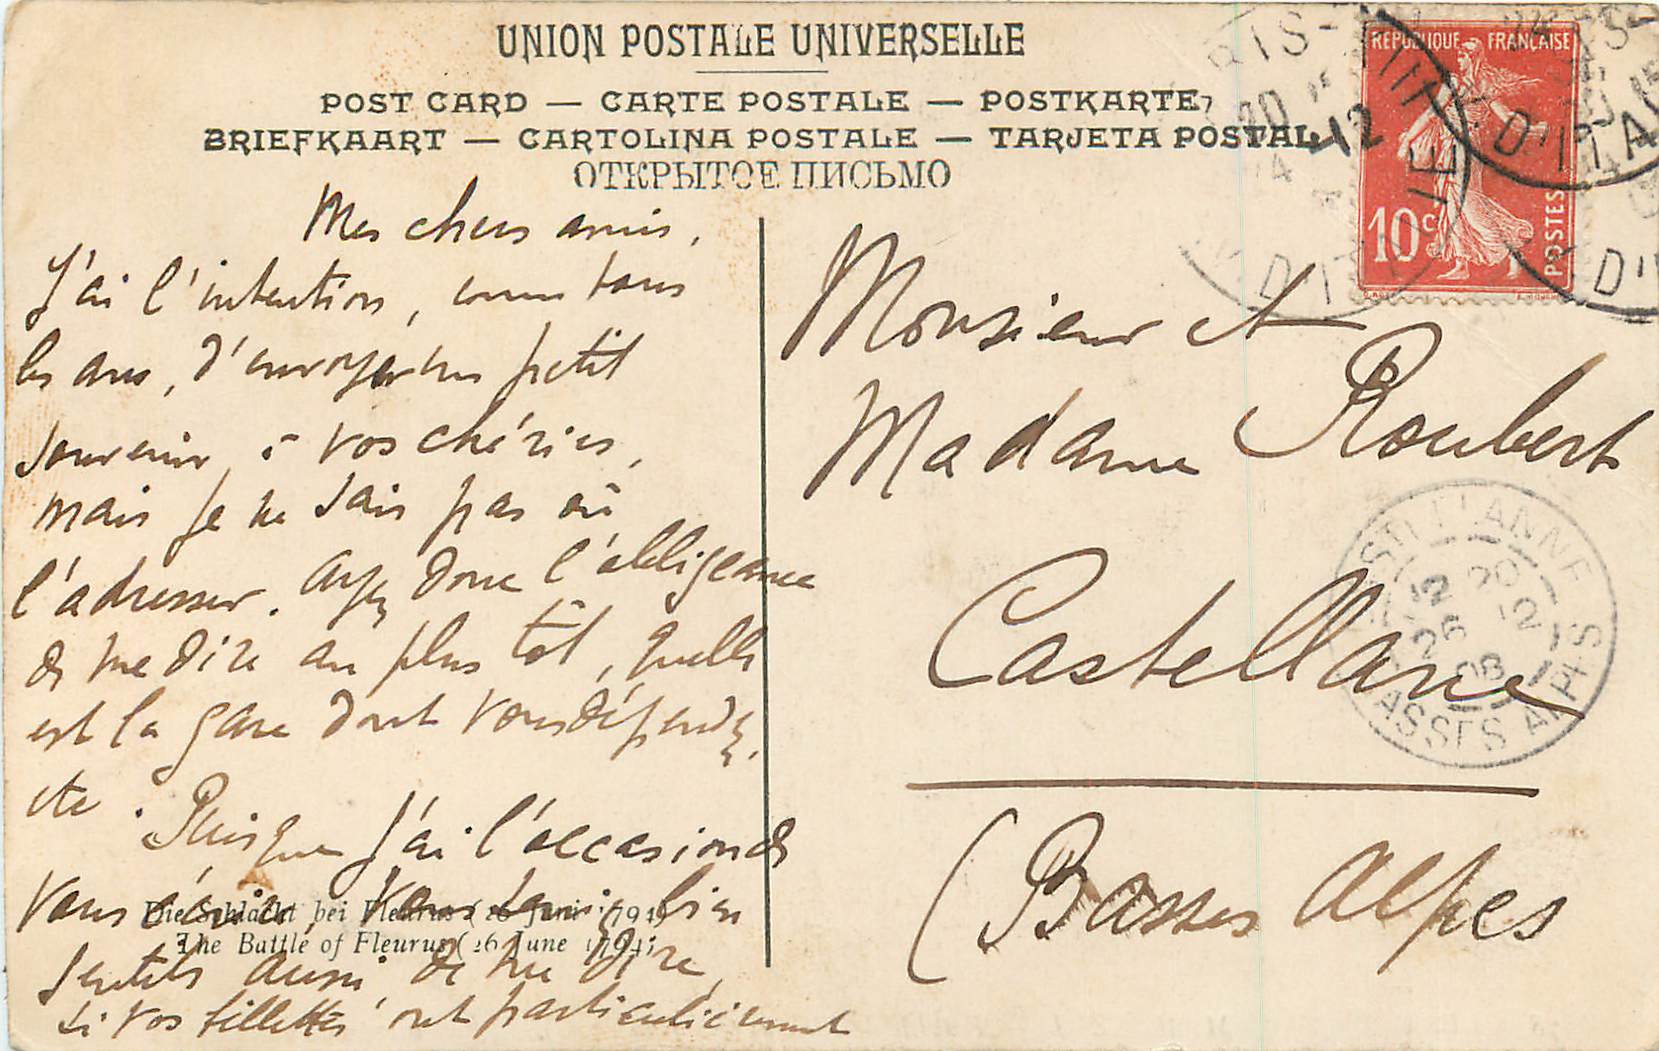 UNION POSTALE UNIVERSELLE
POST CARD — CARTE POSTALE — POSTKARTE
BRIEFKAART — CARTOLINA POSTALE — TARJETA POSTAL
ОТКРЫТОЕ ПИСЬМО
REPUBLIQUE FRANÇAISE
10c
POSTES
Mes chers amis,
J'ai l'intention, comme tous
les ans, d'envoyer un petit
souvenir à vos chéries,
mais je ne sais pas où
l'adresser. Ayez donc l'obligeance
de me dire au plus tôt, quelle
est la gare dont vous dépendez,
etc. Puisque j'ai l'occasion de
vous écrire, vous bien
gentils aussi de me dire,
si vos fillettes ont particulièrement
Die Schlacht bei Fleurus (26 Juni 1794)
The Battle of Fleurus (26 June 1794)
Monsieur et
Madame Roubert
Castellane
(Basses Alpes
CASTELLANNE
12 20
26 12
08
BASSES ALPES